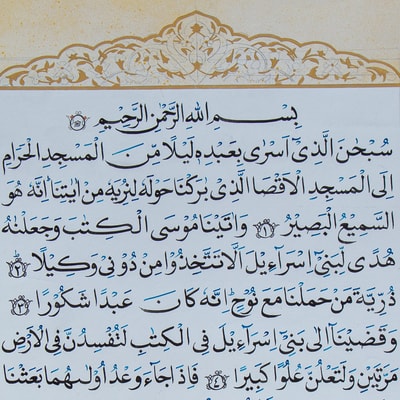 بِسْمِ اللهِ الرَّحْمٰنِ الرَّحيمِ
سُبْحٰنَ الَّذى اَسْرٰى بِعَبْدِه لَيْلًا مِنَ الْمَسْجِدِ الْحَرامِ
اِلَى الْمَسْجِدِ الْاَقْصَا الَّذى بٰرَكْنا حَوْلَهُ لِنُرِيَهُ مِنْ ايٰتِنا اِنَّهُ هُوَ
السَّميعُ الْبَصيرُ ﴿١﴾ وَ اتَيْنا مُوسَى الْكِتٰبَ وَ جَعَلْنٰهُ
هُدًى لِبَنى اِسْراءيلَ اَلّا تَتَّخِذُوا مِنْ دُونى وَكيلًا ﴿٢﴾
ذُرِّيَّةَ مَنْ حَمَلْنا مَعَ نُوحٍ اِنَّهُ كانَ عَبْدًا شَكُورًا ﴿٣﴾
وَ قَضَيْنا اِلى بَنى اِسْراءيلَ فِى الْكِتٰبِ لَتُفْسِدُنَّ فِى الْاَرْضِ
مَرَّتَيْنِ وَ لَتَعْلُنَّ عُلُوًّا كَبيرًا ﴿٤﴾ فَاِذا جاءَ وَعْدُ اُولٰىهُما بَعَثْنا